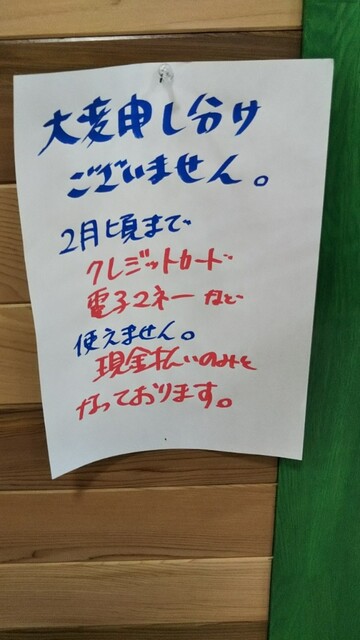 大変申し分け
ございません。
2月頃まで
クレジットカード
電子マネーなど
使えません。
現金払いのみと
なっております。